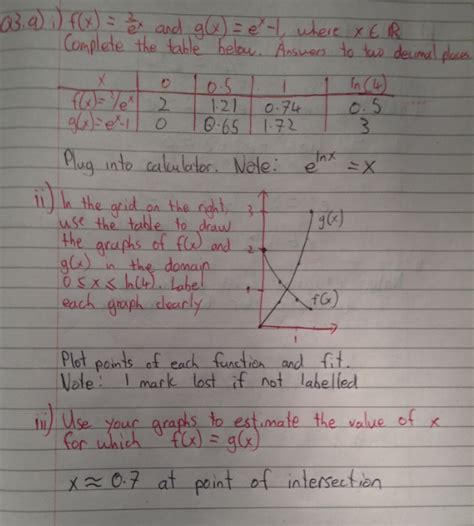 Q3.a) i) f(x) = 2/eˣ and g(x) = eˣ-1, where x ∈ ℝ
Complete the table below. Answers to two decimal places
x 0 0.5 1 ln(4)
f(x)=2/eˣ 2 1.21 0.74 0.5
g(x)=eˣ-1 0 0.65 1.72 3
Plug into calculator. Note: e^lnx = x
ii) In the grid on the right,
use the table to draw
the graphs of f(x) and
g(x) in the domain
0 ≤ x ≤ ln(4). Label
each graph clearly
3
2
1
g(x)
f(x)
1
Plot points of each function and fit.
Note: 1 mark lost if not labelled
iii) Use your graphs to estimate the value of x
for which f(x) = g(x)
x ≈ 0.7 at point of intersection